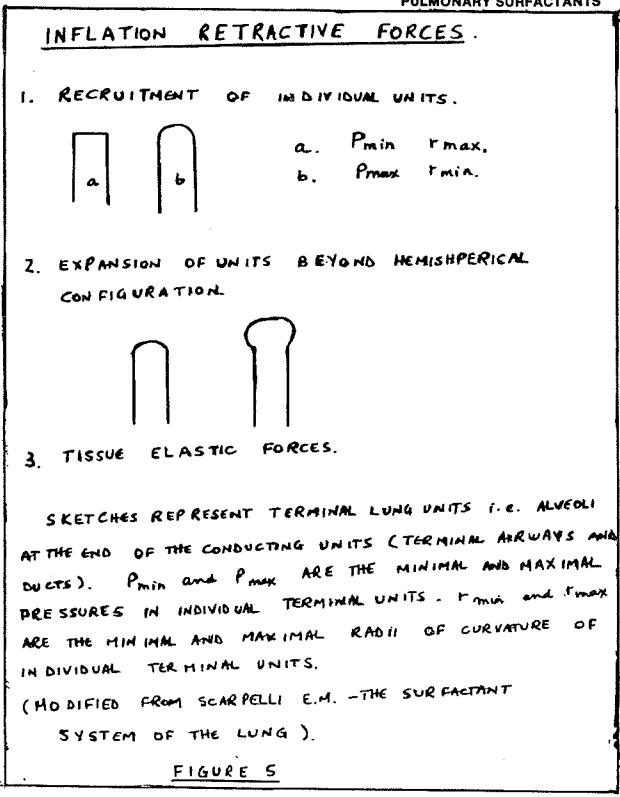 PULMONARY SURFACTANTS
INFLATION RETRACTIVE FORCES.
1. RECRUITMENT OF INDIVIDUAL UNITS.
a b
a. Pmin rmax.
b. Pmax rmin.
2. EXPANSION OF UNITS BEYOND HEMISHPERICAL
CONFIGURATION
3. TISSUE ELASTIC FORCES.
SKETCHES REPRESENT TERMINAL LUNG UNITS i.e. ALVEOLI
AT THE END OF THE CONDUCTING UNITS (TERMINAL AIRWAYS AND
DUCTS). Pmin and Pmax ARE THE MINIMAL AND MAXIMAL
PRESSURES IN INDIVIDUAL TERMINAL UNITS. rmin and rmax
ARE THE MINIMAL AND MAXIMAL RADII OF CURVATURE OF
INDIVIDUAL TERMINAL UNITS.
(MODIFIED FROM SCARPELLI E.M. - THE SURFACTANT
SYSTEM OF THE LUNG).
FIGURE 5